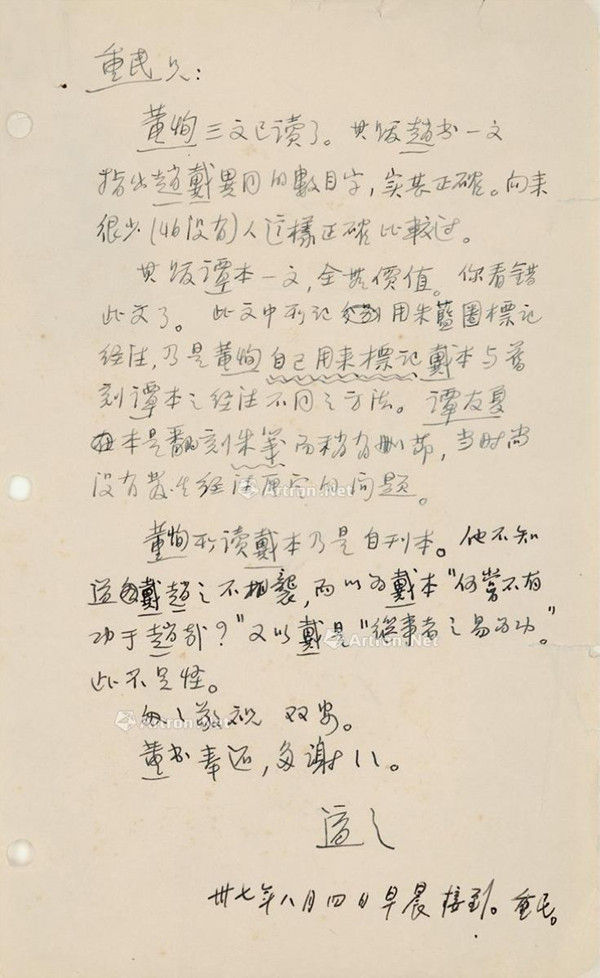 重民兄：
董恂三文已讀了。其跋趙书一文
指出趙戴異同的數目字，实甚正確。向来
很少(或没有)人这樣正確比較过。
其跋谭本一文，全無價值。你看错
此文了。此文中所记用朱藍圈標记
经注，乃是董恂自己用来標记戴本与舊
刻谭本之经注不同之方法。谭友夏
本是翻刻朱笺而稍有删節，当时尚
没有发生经注厘定的问题。
董恂所读戴本乃是自刊本。他不知
道戴趙之不相襲，而以为戴本“何嘗不有
功于趙哉？”又以戴是“继事者之易为功”。
此不足怪。
匆匆敬祝 双安。
董书奉还，多谢多谢。
適之
卅七年八月四日早晨接到。重民。
Artron.Net
Artron.Net
Artron.Net